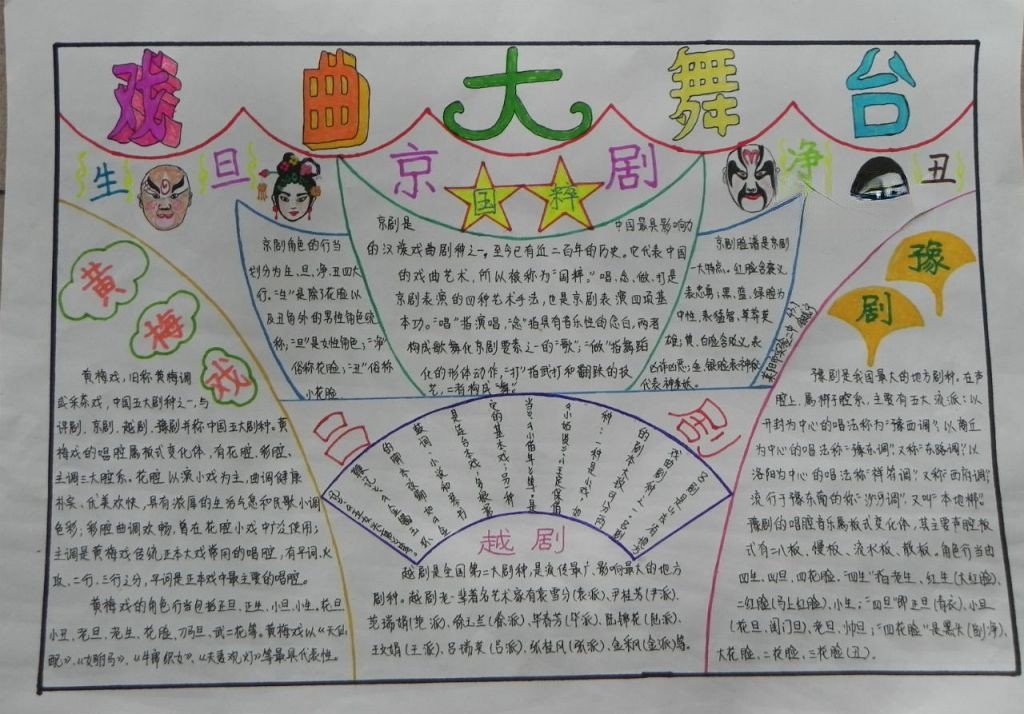 戏曲大舞台
生 旦 京剧 净 丑
国粹
京剧角色的行当
划分为生、旦、净、丑四大
行。"生"是除了花脸以
及丑角外的男性角色统
称,"旦"是女性角色,"净"
俗称花脸,"丑"俗称
小花脸。
京剧是 中国最具影响力
的汉族戏曲剧种之一,至今已有近二百年的历史。它代表中国
的戏曲艺术,所以被称为"国粹"。唱、念、做、打是
京剧表演的四种艺术手法,也是京剧表演四项基
本功。"唱"指演唱,"念"指具有音乐性的念白,两者
构成歌舞化京剧要素之一的"歌";"做"指舞蹈
化的形体动作,"打"指武打和翻跌的技
艺,二者构成"舞"。
京剧脸谱是京剧
一大特点。红脸含褒义
表忠勇;黑、蓝、绿脸为
中性,表猛智、草莽英
雄;黄、白脸含贬义,表
凶诈凶恶;金、银脸表神
代表神妖。
黄梅戏
黄梅戏,旧称黄梅调
或采茶戏,中国五大剧种之一,与
评剧、京剧、越剧、豫剧并称中国五大剧种。黄
梅戏的唱腔属板式变化体,有花腔、彩腔、
主调三大腔系。花腔以演小戏为主,曲调健康
朴实、优美欢快,具有浓厚的生活气息和民歌小调
色彩;彩腔曲调欢畅,曾在花腔小戏中广泛使用;
主调是黄梅戏传统正本大戏常用的唱腔,有平词、火
攻、二行、三行之分,平词是正本戏中最主要的唱腔。
黄梅戏的角色行当包括正旦、正生、小旦、小生、花旦、
小丑、老旦、老生、花脸、刀马旦、武二花等。黄梅戏以《天仙
配》、《女驸马》、《牛郎织女》、《夫妻观灯》等最具代表性。
吕剧
越剧
越剧是全国第二大剧种,是流传最广、影响最大的地方
剧种。越剧老一辈著名艺术家有袁雪芬(袁派)、尹桂芳(尹派)、
范瑞娟(范派)、徐玉兰(徐派)、毕春芳(毕派)、陆锦花(陆派)、
王文娟(王派)、吕瑞英(吕派)、张桂凤(张派)、金采风(金派)等。
豫剧
豫剧是我国最大的地方剧种。在声
腔上,属梆子腔系,主要有五大流派:以
开封为中心的唱法称为"豫西调";以商丘
为中心的唱法称为"豫东调",又称"东路调";以
洛阳为中心的唱法称"祥符调",又称"西府调";
流行于豫东南的称"沙河调",又叫"本地梆"。
豫剧的唱腔音乐属板式变化体,其主要声腔板
式有二八板、慢板、流水板、散板。角色行当由
四生、四旦、四花脸。"四生"指老生、红生(大红脸)、
二红脸(马上红脸)、小生;"四旦"即正旦(青衣)、小旦
(花旦、闺门旦)、老旦、帅旦;"四花脸"是黑头(副净)、
大花脸、二花脸、三花脸(丑)。